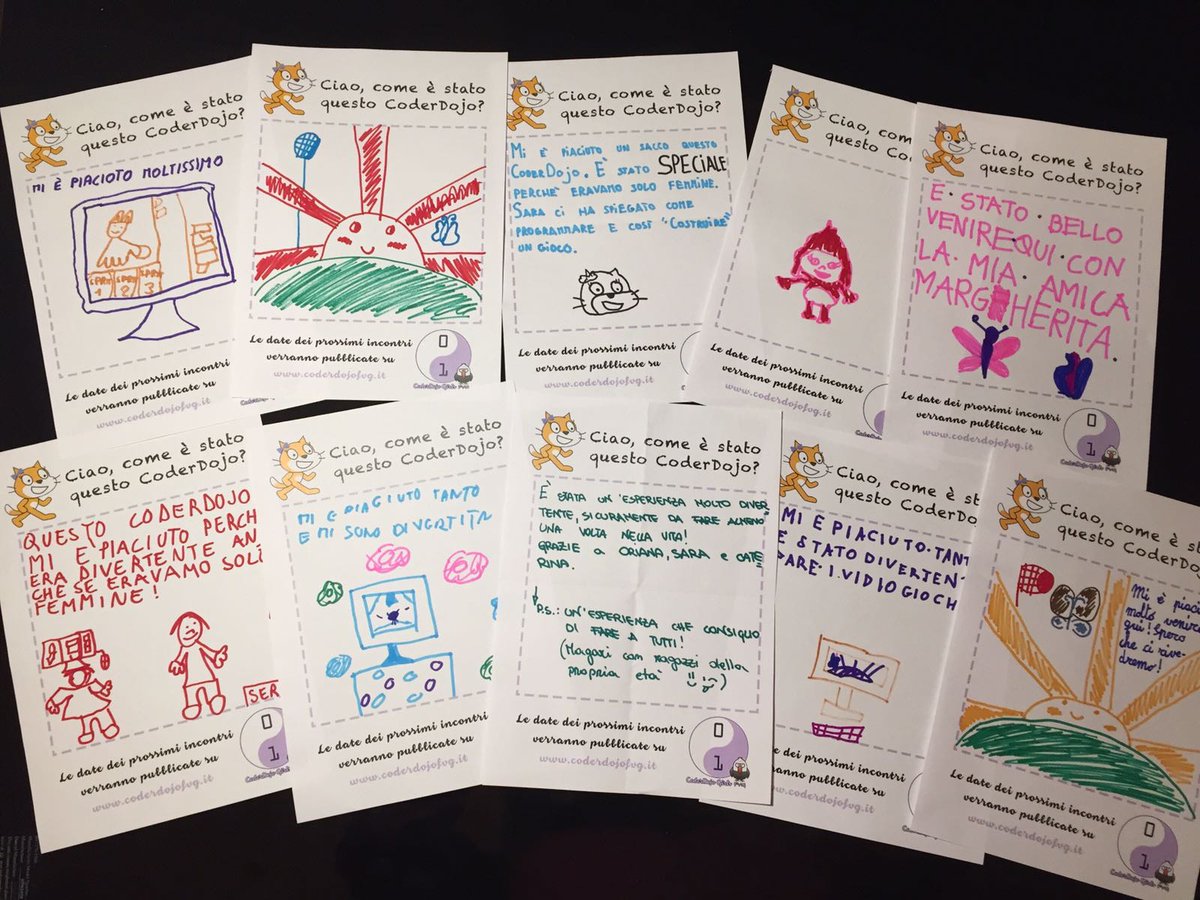 Ciao, come è stato
questo CoderDojo?
MI È PIACIOTO MOLTISSIMO
SPRIT
1
SPRIT
2
SPRIT
3
Le date dei prossimi incontri
verranno pubblicate su
www.coderdojofvg.it
Ciao, come è stato
questo CoderDojo?
Le date dei prossimi incontri
verranno pubblicate su
www.coderdojofvg.it
0
1
CoderDojo Girls FVG
Ciao, come è stato
questo CoderDojo?
MI È PIACIUTO UN SACCO QUESTO
CODERDOJO. È STATO SPECIALE
PERCHÈ ERAVAMO SOLO FEMMINE.
SARA CI HA SPIEGATO COME
PROGRAMMARE E COSÌ "COSTRUIRE"
UN GIOCO.
Le date dei prossimi incontri
verranno pubblicate su
www.coderdojofvg.it
Ciao, come è
questo CoderD
Le date dei prossimi
verranno pubblicate
www.coderdojofvg
Ciao, come è stato
questo CoderDojo?
E · STATO · BELLO
VENIRE QUI · CON
LA · MIA · AMICA
MARGHERITA.
Le date dei prossimi incontri
verranno pubblicate su
www.coderdojofvg.it
0
1
CoderDojo Girls FVG
Ciao, come è stato
questo CoderDojo?
QUESTO CODERDOJO
MI E PIACIUTO PERCH
ERA DIVERTENTE AN
CHE SE ERAVAMO SOLE
FEMMINE!
SER
Le date dei prossimi incontri
verranno pubblicate su
www.coderdojofvg.it
0
1
Ciao, come è stato
questo CoderDojo?
MI È PIACIUTO TANTO
E MI SONO DIVERTITA
Le date dei prossimi incontri
verranno pubblicate su
www.coderdojofvg.it
Ciao, come è stato
questo CoderDojo?
È STATA UN'ESPERIENZA MOLTO DIVER
TENTE, SICURAMENTE DA FARE ALMENO
UNA VOLTA NELLA VITA!
GRAZIE A ORIANA, SARA E CATE
RINA.
P.S.: UN'ESPERIENZA CHE CONSIGLIO
DI FARE A TUTTI!
(Magari con ragazzi della
propria età)
Le date dei prossimi incontri
verranno pubblicate su
www.coderdojofvg.it
0
1
CoderDojo Girls FVG
Ciao, come è sta
questo CoderDo
MI È PIACIUTO · TANT
E STATO DIVERTENT
FARE · I · VIDIO GIOCH
Le date dei prossimi incontri
verranno pubblicate su
www.coderdojofvg.it
Ciao, come è
questo CoderD
Mi è piaci
molto venire
qui! Spero
che ci rive-
dremo!
Le date dei prossimi incontri
verranno pubblicate su
www.coderdojofvg.it
0
1
CoderDojo Girls FVG